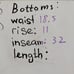 Bottoms:
waist 18.5
rise: 11
inseam: 32
length: